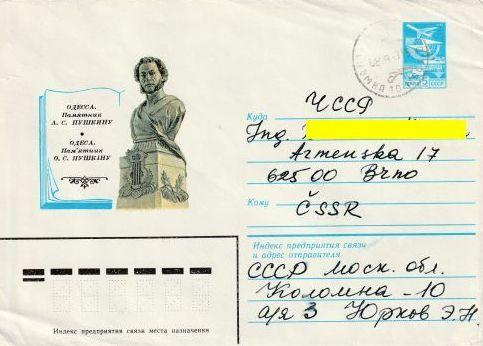 ОДЕССА.
Памятник
А. С. ПУШКИНУ
ОДЕСА.
Пам'ятник
О. С. ПУШКІНУ
ПОЧТА СССР
Куда
ЧССР
Ing.
Armenska 17
625 00 Brno
Кому
ČSSR
Индекс предприятия связи
и адрес отправителя
СССР Моск. обл.
Коломна - 10
а/я 3 Юрков Э.Н.
Индекс предприятия связи места назначения